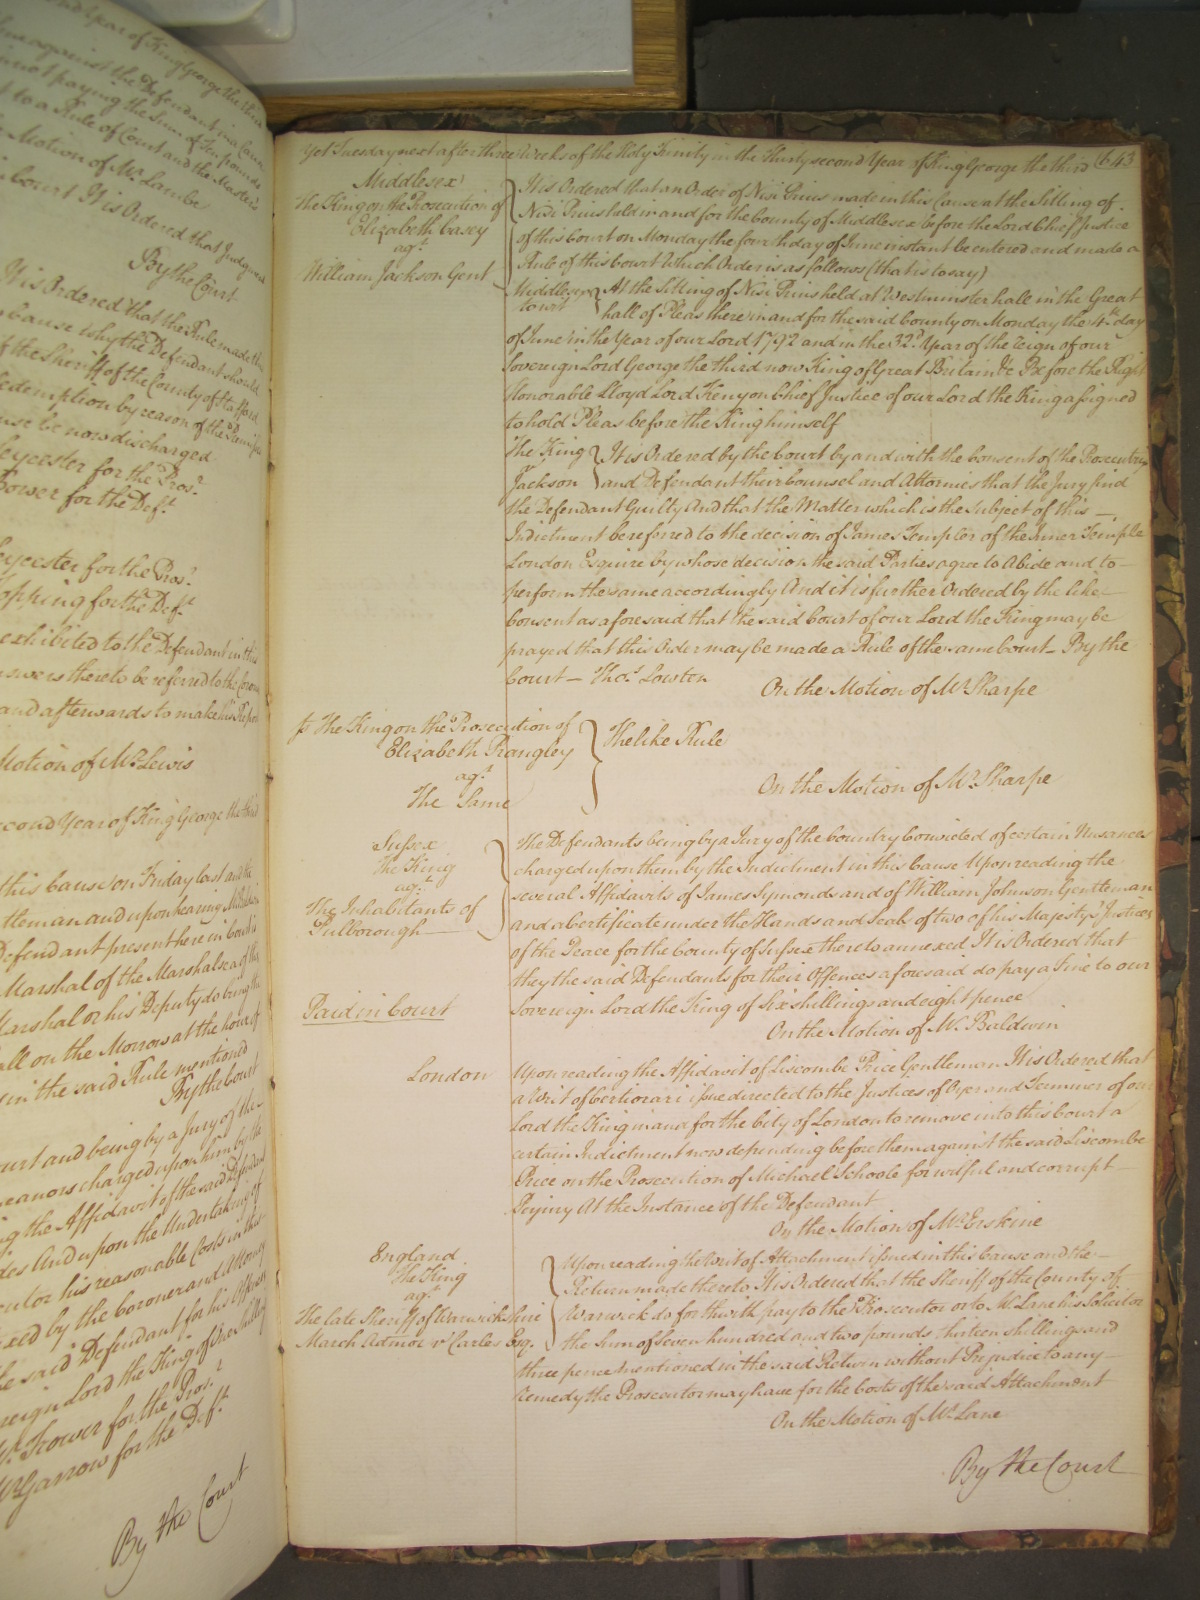 Year of King George the third
against the Defendant in a Cause
not paying the Sum of Six pounds
to a Rule of Court and the Master's
Motion of Mr. Lambe
Court It is Ordered that Judgment
By the Court
It is Ordered that the Rule made this
Cause why the Defendant should
of the Sheriff of the County of Stafford
redemption by reason of the
be now discharged
Leycester for the Pros.r
Bower for the Def.t
Leycester for the Pros.r
Topping for the Def.t
exhibited to the Defendant in this
answers thereto be referred to the Coroner
and afterwards to make his Report
Motion of Mr. Lewis
second Year of King George the third
this Cause on Friday last and the
Gentleman and upon hearing
Defendant present here in Court
Marshal of the Marshalsea of this
Marshal or his Deputy do bring the
Hall on the Morrow at the hour of
in the said Rule mentioned
By the Court
Court and being by a Jury of the
charged upon him by the
the Affidavit of the said Defendant
And upon the Undertaking of
his reasonable Costs in this
by the Coroner and Attorney
the said Defendant for his Offence
Lord the King of One Shilling
Mr. Trower for the Pros.r
Mr. Garrow for the Def.t
By the Court
Yet Tuesday next after three Weeks of the Holy Trinity in the Thirty second Year of King George the third 643
Middlesex
The King on the Prosecution of
Elizabeth Casey
ag.t
William Jackson Gent
It is Ordered that an Order of Nisi Prius made in this Cause at the Sitting of
Nisi Prius held in and for the County of Middlesex before the Lord Chief Justice
of this Court on Monday the fourth day of June instant be entered and made a
Rule of this Court Which Order is as follows (that is to say)
Middlesex to wit At the Sitting of Nisi Prius held at Westminster hall in the Great
hall of Pleas there in and for the said County on Monday the 4th day
of June in the Year of our Lord 1792 and in the 32.d Year of the Reign of our
Sovereign Lord George the third now King of Great Britain &c Before the Right
Honorable Lloyd Lord Kenyon Chief Justice of our Lord the King assigned
to hold Pleas before the King himself
The King It is Ordered by the Court by and with the Consent of the Prosecutrix
Jackson and Defendant their Counsel and Attornies that the Jury find
the Defendant Guilty And that the Matter which is the Subject of this —
Indictment be referred to the decision of James Templer of the Inner Temple
London Esquire by whose decision the said Parties agree to Abide and to —
perform the same accordingly And it is further Ordered by the like —
Consent as aforesaid that the said Court of our Lord the King may be
prayed that this Order may be made a Rule of the same Court — By the
Court — Tho.s Lowten
On the Motion of Mr. Sharpe
The King on the Prosecution of
Elizabeth Prangley
ag.t
The Same
The like Rule
On the Motion of Mr. Sharpe
Sussex
The King
ag.t
The Inhabitants of
Pulborough
The Defendants being by a Jury of the Country Convicted of certain Nusances
charged upon them by the Indictment in this Cause Upon reading the
several Affidavits of James Symonds and of William Johnson Gentleman
and a Certificate under the Hands and Seals of two of his Majesty's Justices
of the Peace for the County of Sussex thereto annexed It is Ordered that
they the said Defendants for their Offences aforesaid do pay a Fine to our
Sovereign Lord the King of Six shillings and eight pence
Paid in Court
On the Motion of Mr. Baldwin
London
Upon reading the Affidavit of Liscombe Price Gentleman It is Ordered that
a Writ of Certiorari issue directed to the Justices of Oyer and Terminer of our
Lord the King in and for the City of London to remove into this Court a
certain Indictment now depending before them against the said Liscombe
Price on the Prosecution of Michael Schoole for wilful and corrupt —
Perjury At the Instance of the Defendant
On the Motion of Mr. Erskine
England
The King
ag.t
The late Sheriff of Warwickshire
March Admor v Carles Esq.
Upon reading the Writ of Attachment issued in this Cause and the —
Return made thereto It is Ordered that the Sheriff of the County of
Warwick do forthwith pay to the Prosecutor or to Mr. Lane his Solicitor
the Sum of Seven hundred and two pounds thirteen shillings and
three pence mentioned in the said Return without Prejudice to any —
remedy the Prosecutor may have for the Costs of the said Attachment
On the Motion of Mr. Lane
By the Court